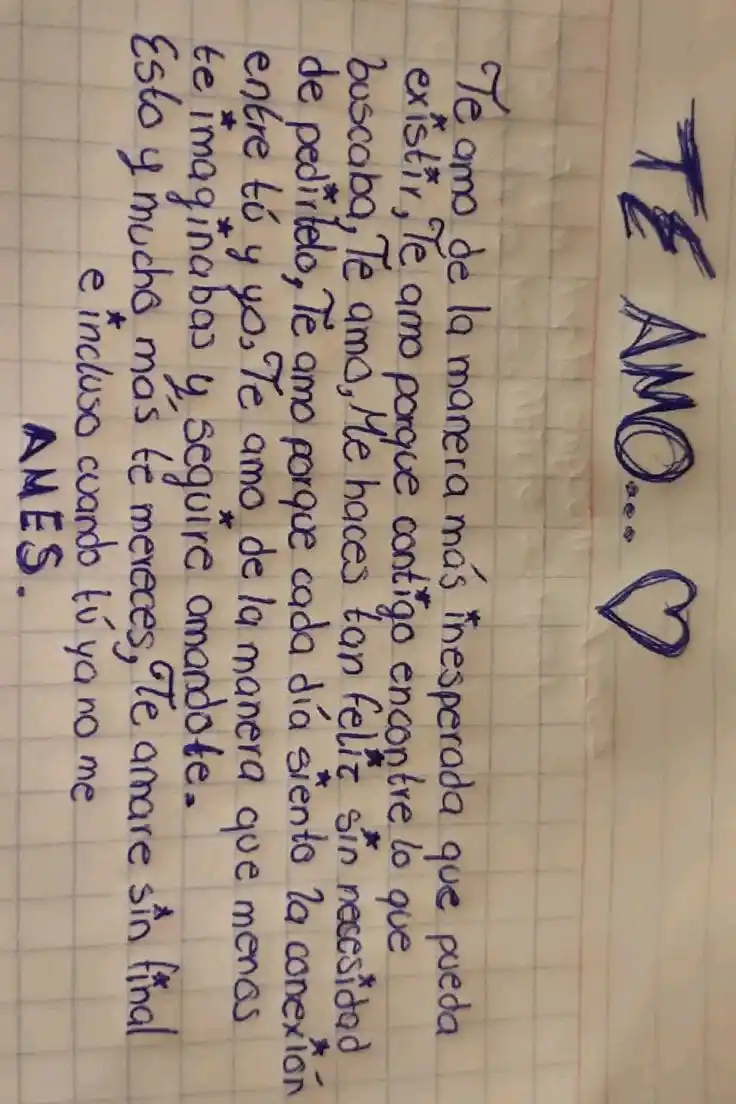 TE AMO... ♡
Te amo de la manera más inesperada que pueda
existir, Te amo porque contigo encontre lo que
buscaba, Te amo, Me haces tan feliz sin necesidad
de pedirtelo, Te amo porque cada día siento la conexión
entre tú y yo, Te amo de la manera que menos
te imaginabas y, seguire amandote.
Esto y mucho más te mereces, Te amare sin final
e incluso cuando tú ya no me
AMES.